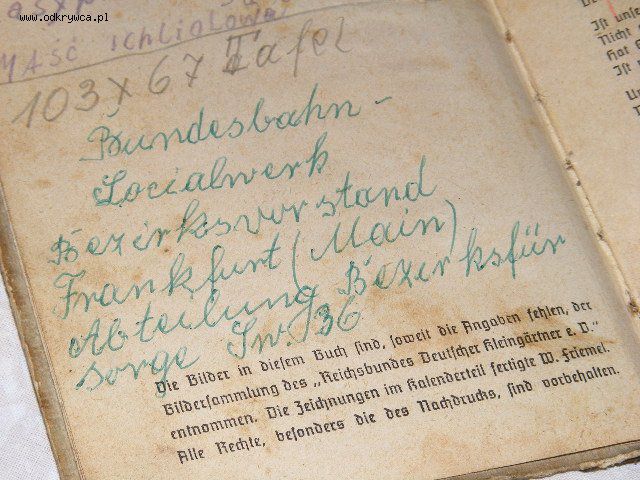 www.odkrywca.pl
MAŚĆ ICHLIOLOWA
103 x 67 Tafel
Bundesbahn-
Socialwerk
Bezirksvorstand
Frankfurt (Main)
Abteilung Bezirksfür
sorge Sw. 36
Die Bilder in diesem Buch sind, soweit die Angaben fehlen, der
Bildersammlung des „Reichsbundes Deutscher Kleingärtner e. V."
entnommen. Die Zeichnungen im Kalenderteil fertigte W. Friemel.
Alle Rechte, besonders die des Nachdrucks, sind vorbehalten.
Ist unse
Nicht
hat
Ist